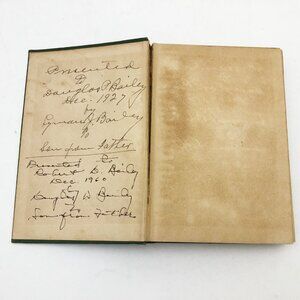 Presented
To
Douglas P Bailey
Dec. 1927
by
Lyman Bailey
to
Son from Father
Presented to
Robert D. Bailey
Dec 1960
by
Bailey
Son from Father